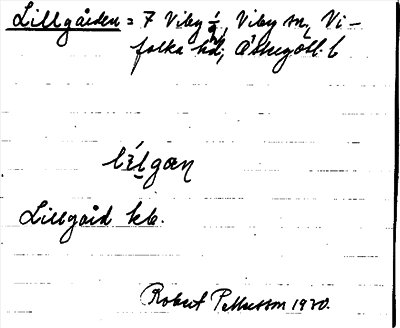 Lillgården = 7 Viby, Viby sn, Vi-
folka hd, Östergötl. l
lilgan
Lillgård kb.
Robert Pettersson 1920.